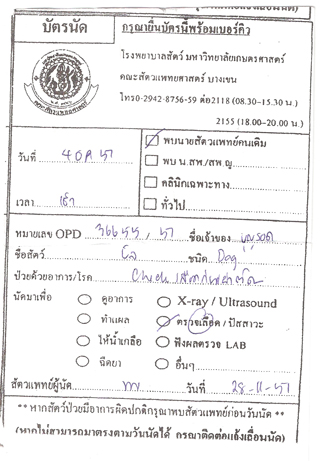 บัตรนัด
กรุณายื่นบัตรนี้พร้อมเบอร์คิว
โรงพยาบาลสัตว์ มหาวิทยาลัยเกษตรศาสตร์
คณะสัตวแพทยศาสตร์ บางเขน
โทร0-2942-8756-59 ต่อ2118 (08.30-15.30 น.)
2155 (18.00-20.00 น.)
วันที่
พบนายสัตวแพทย์คนเดิม
พบ น.สพ./สพ.ญ.
คลินิกเฉพาะทาง
เวลา เช้า
ทั่วไป
หมายเลข OPD 36655, 51 ชื่อเจ้าของ บุญรอด
ชื่อสัตว์ ชนิด Dog
ป่วยด้วยอาการ/โรค Check
นัดมาเพื่อ ดูอาการ X-ray / Ultrasound
ทำแผล ตรวจเลือด / ปัสสาวะ
ให้น้ำเกลือ ฟังผลตรวจ LAB
ฉีดยา อื่นๆ
สัตวแพทย์ผู้นัด วันที่ 28-11-51
**หากสัตว์ป่วยมีอาการผิดปกติกรุณาพบสัตวแพทย์ก่อนวันนัด **
(หากไม่สามารถมาตรงตามวันนัดได้ กรุณาติดต่อแจ้งเลื่อนนัด)